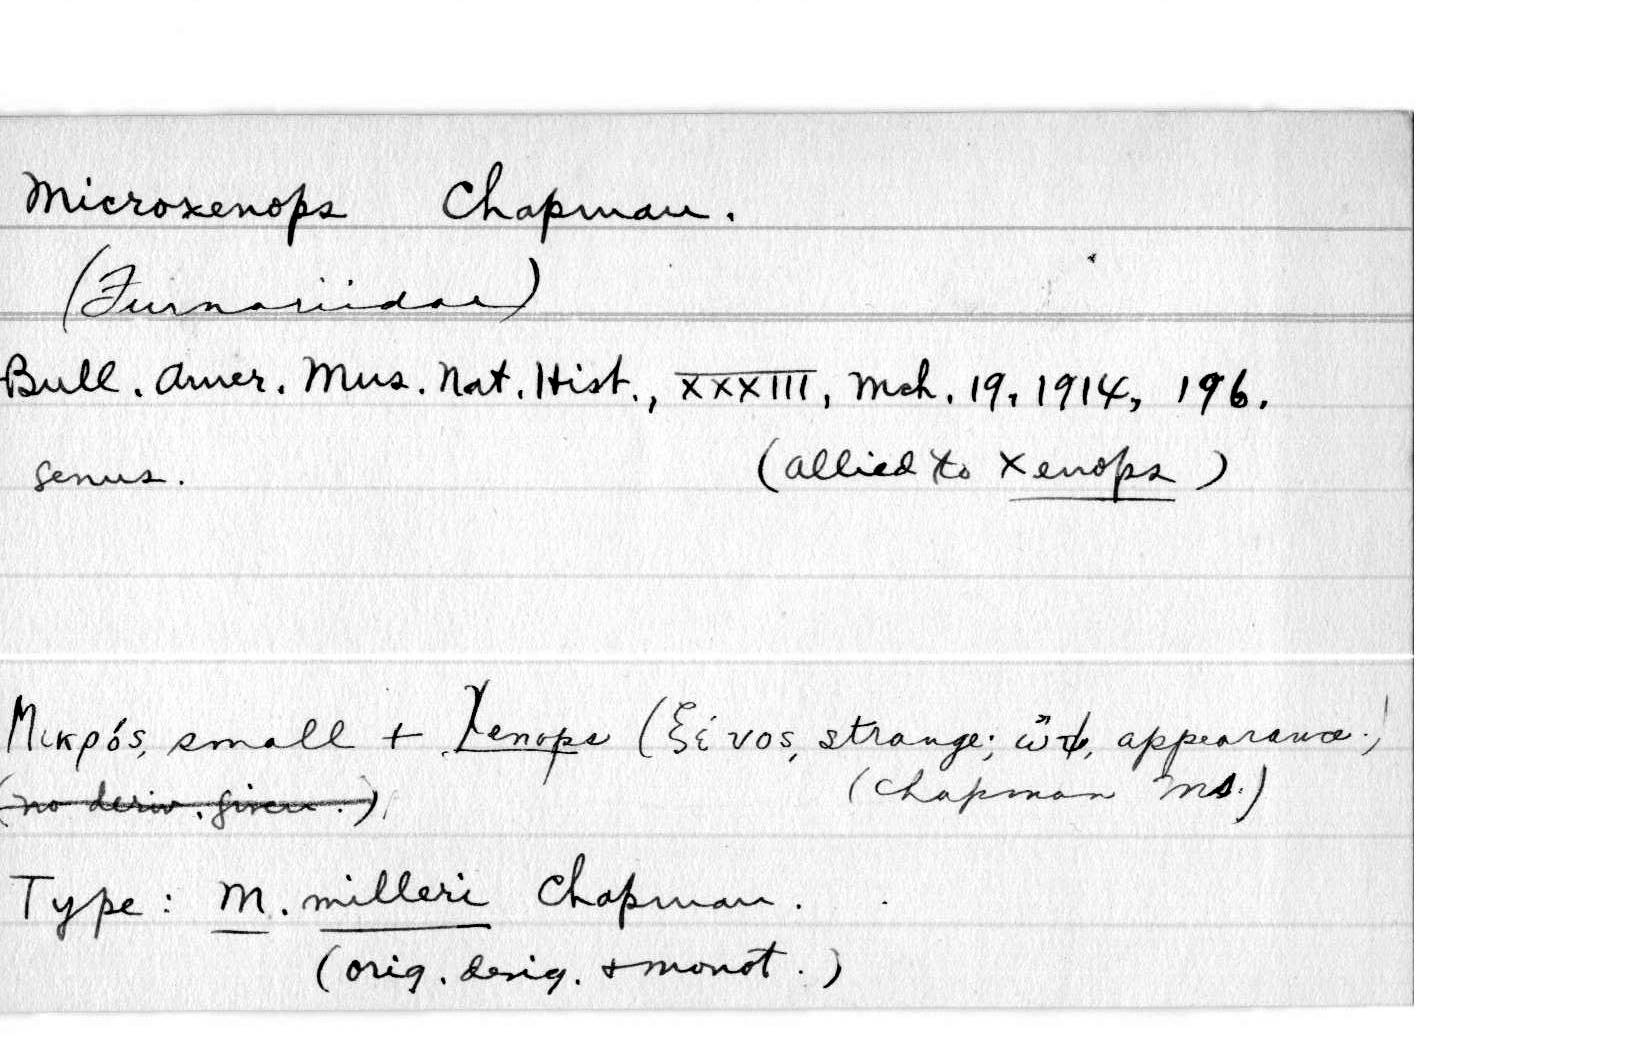 Microxenops Chapman.
(Furnariidae)
Bull. Amer. Mus. Nat. Hist., XXXIII, Mch. 19, 1914, 196.
genus. (allied to Xenops)
Μικρός, small + Xenops (ξένος, strange; ὤψ, appearance.)
(no deriv. given.) (Chapman Ms.)
Type: M. milleri Chapman.
(orig. desig. + monot.)